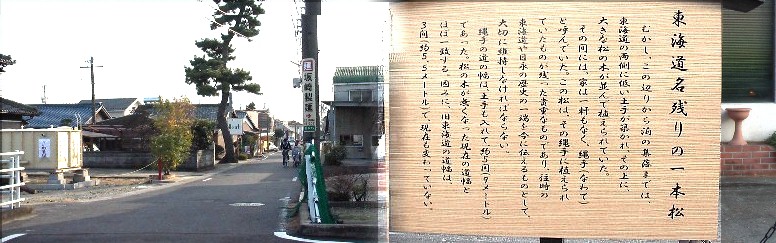 東海道名残りの一本松
むかし、この辺りから泊の集落までは、
東海道の両側に低い土手が築かれ、その上に、
大きな松の木が並べて植えられていた。
その間には、家は一軒もなく、縄手（なわて）
と呼んでいた。この松は、その縄手に植えられ
ていたものが残った貴重なものであり、往時の
東海道や日永の歴史の一端を今に伝えるものとして、
大切に維持しなければならない。
縄手の道の幅は、土手も入れて、約5間（9メートル）
であった。松の木が無くなった現在の道幅と
ほぼ一致する。因みに、旧東海道の道幅は、
3間（約5.5メートル）で、現在も変わっていない。